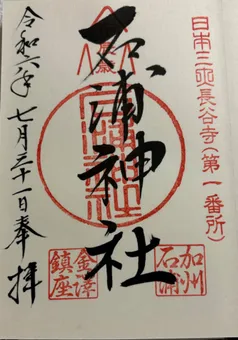 日本三所長谷寺(第一番所)
加州
石浦
石浦神社
金澤
鎮座
令和六年七月三十一日奉拝